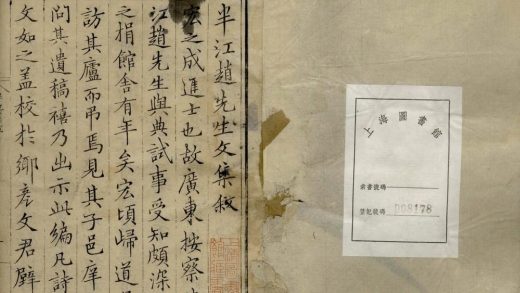 上海圖書館
索書號碼
登記號碼 008178
半江趙先生文集敘
宏之成進士也故廣東按察
江趙先生與典試事受知頗深
之捐館舍有年矣宏頃歸道
訪其廬而弔焉見其子邑庠
問其遺稿禧乃出示此編凡詩
文如之盖校於鄉彥文君壁